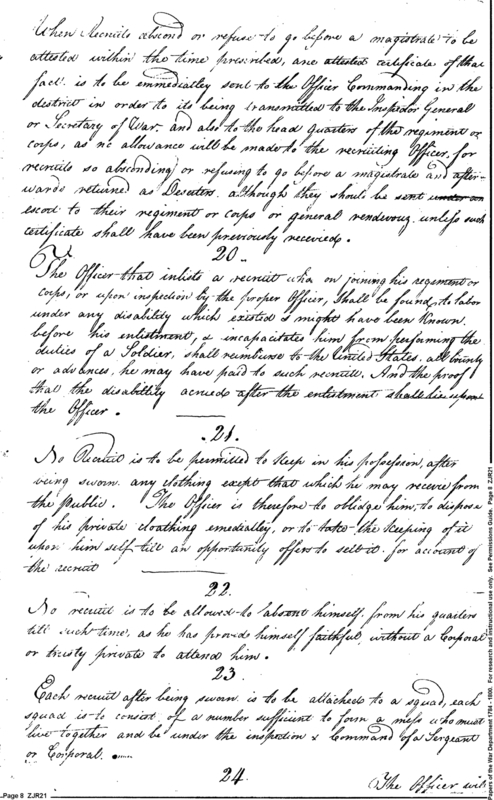 When Recruits abscond or refuse to go before a magistrate to be
attested within the time prescribed, are attested certificate of that
fact is to be emmediatley sent to the Officer Commanding in the
district in order to its being transmitted to the Inspector General
or Secretary of War. and also to the head quarters of the regiment or
corps, as no allowance will be made to the recruiting Officer, for
recruits so absconding or refusing to go before a magistrate and after-
wards returned as Deserters. although they should be sent under an
escort to their regiment or corps or general rendevouz unless such
certificate shall have been previously received.
20
The Officer that inlists a recruit who on joining his regement or
corps, or upon inspection by the proper Officer, shall be found to labor
under any disability which existed & might have been known
before his enlistment, & incapacitates him from performing the
duties of a Soldier, shall reimburse to the United States. all bounty
or advances, he may have paid to such recruit. And the proof
that the disability acrued after the entistment shall lie upon
the Officer.
21.
No Recruit is to be permitted to keep in his possession, after
being sworn. any clothing exept that which he may receive from
the public. The Officer is therefore to oblidge him, to dispose
of his private cloathing emedialley, or to take the keeping of it
upon him self till an opportunity offers to sell it. for account of
the recruit
22.
No recruit is to be allowed to absent himself. from his quarters
till such time, as he has provd himself faithful, without a Corporal
or trusty private to attend him.
23
Each recruit after being sworn. is to be attached to a squad, each
squad is to consist. of a number sufficient to form a mess who must
live together and be under the inspection & Command of a Sergeant
or Corporal.
24.
The Officer will
Page 8 ZJR21
Papers of the War Department 1784 - 1800. For research and instructional use only. See Permissions Guide. Page 8 ZJR21